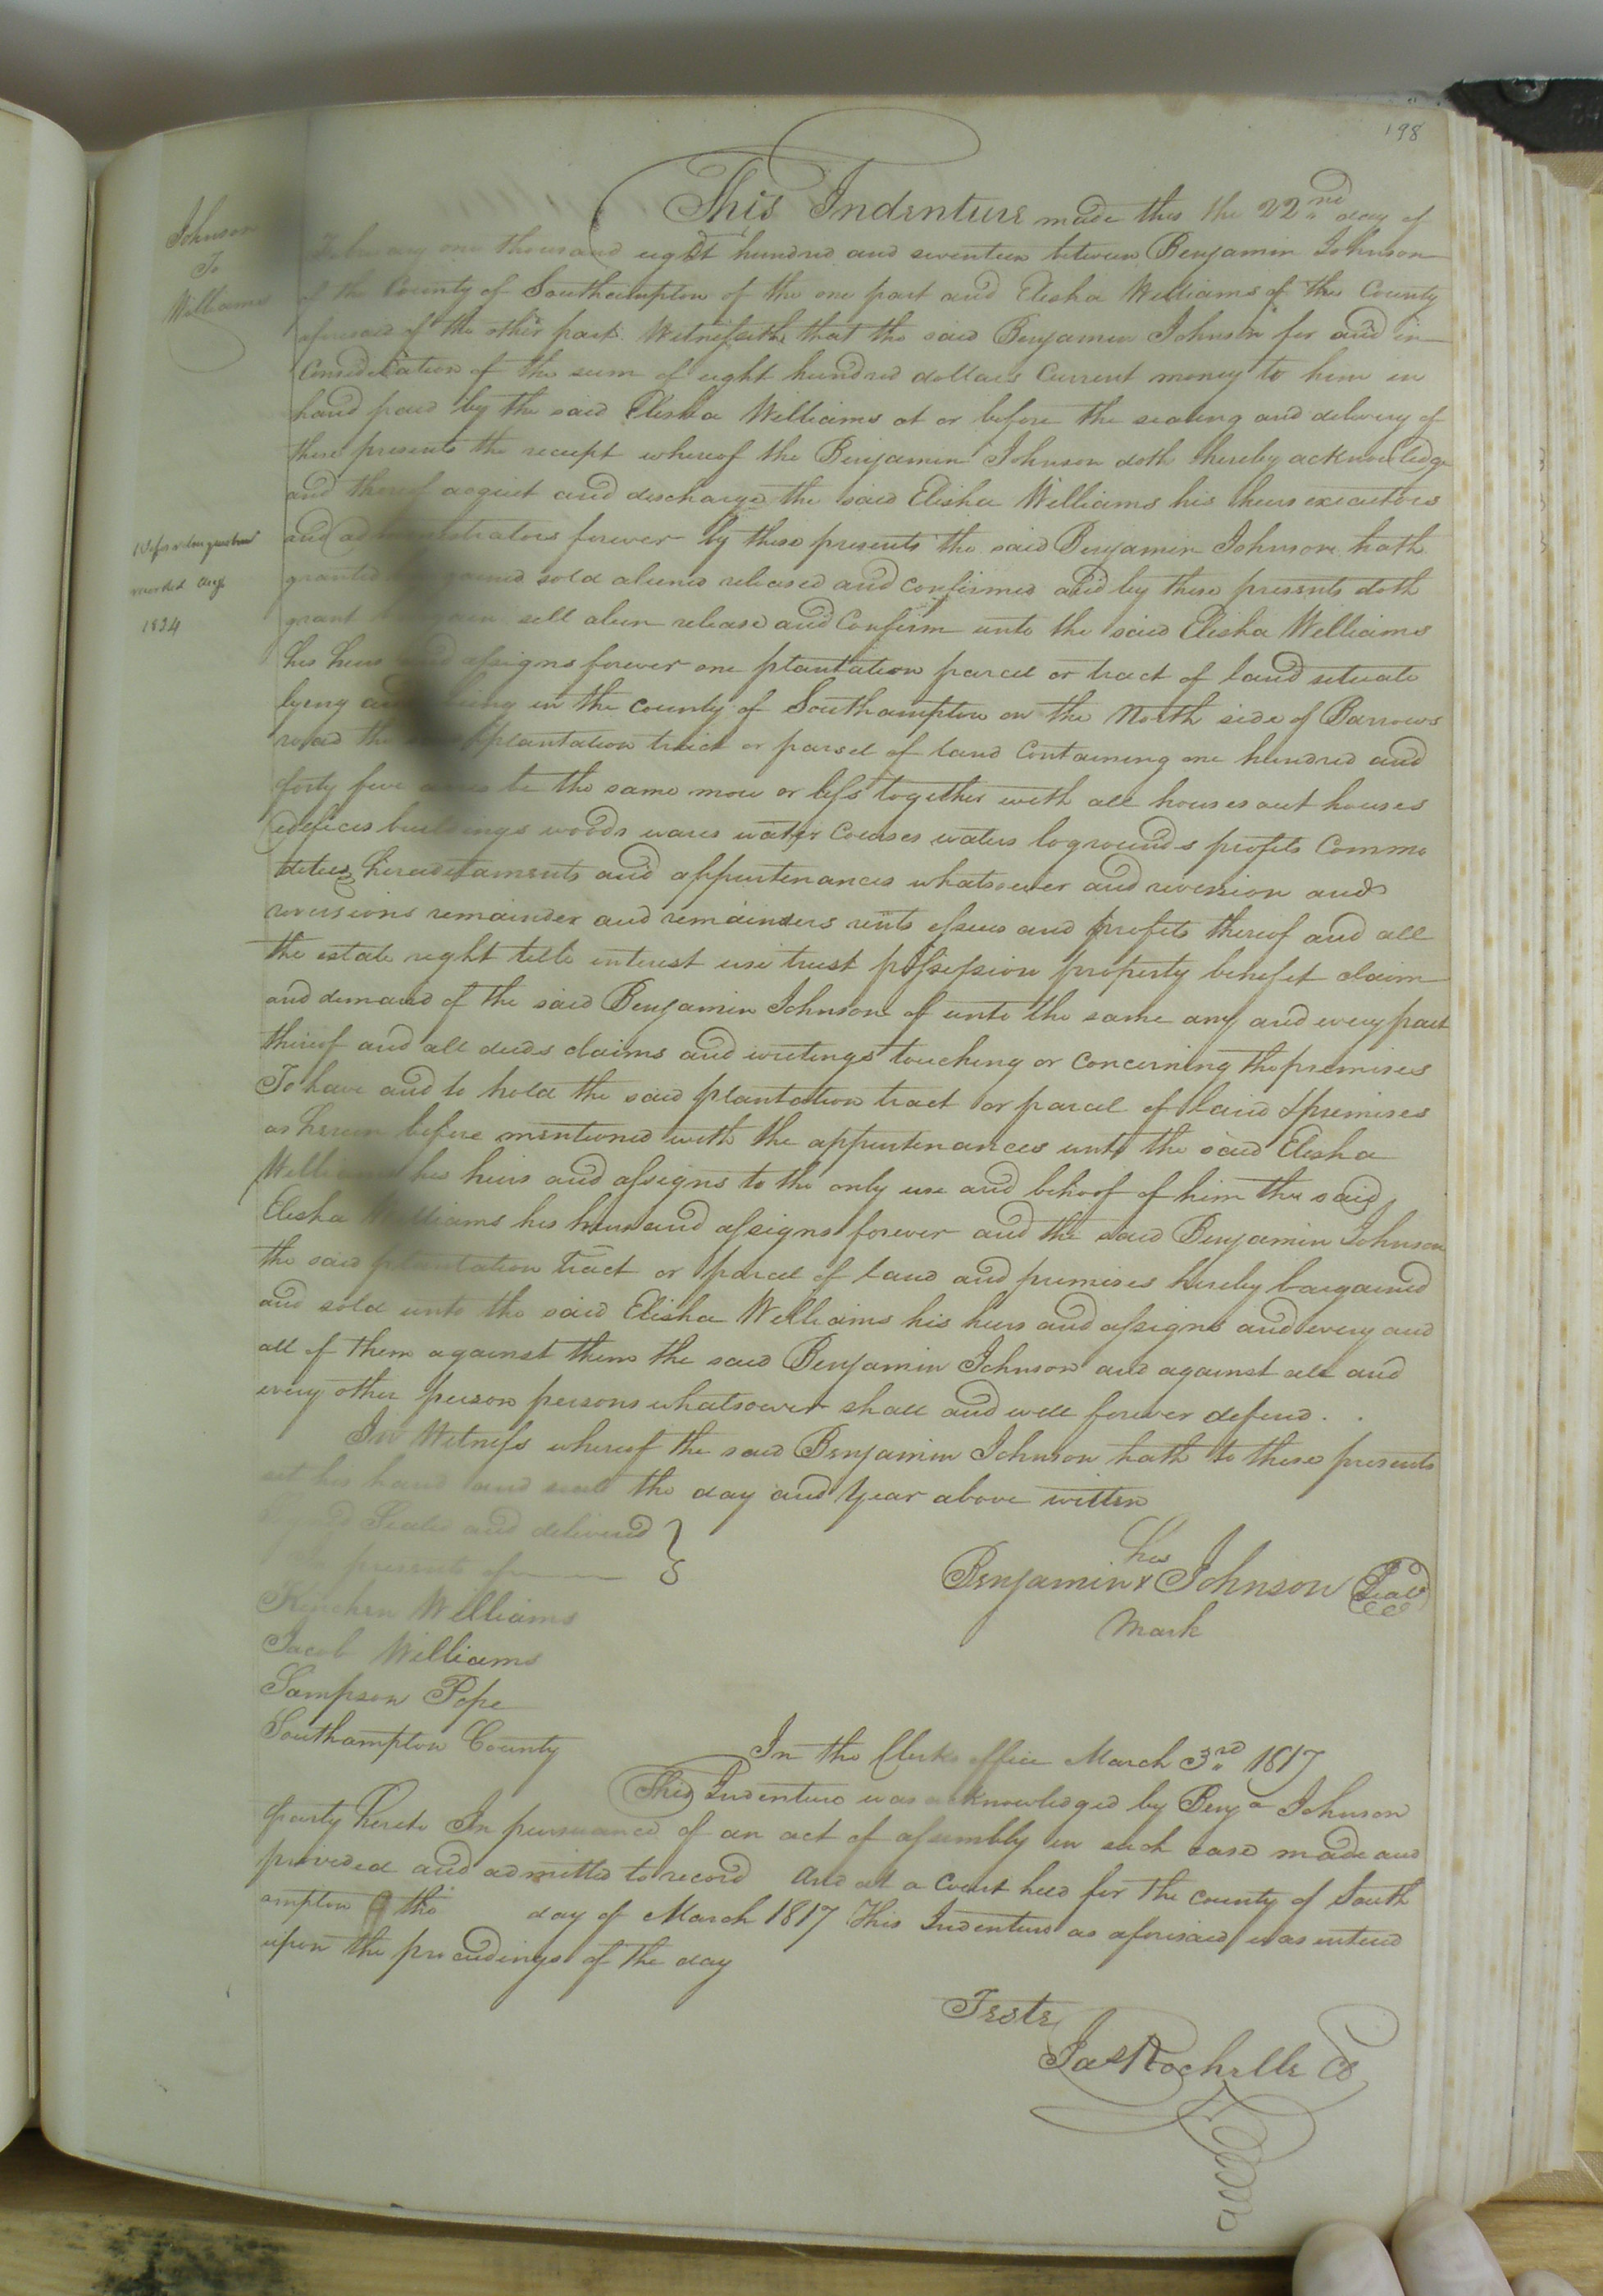 198
Johnson
To
Williams
This Indenture made this the 22nd day of
February one thousand eight hundred and seventeen between Benjamin Johnson
of the County of Southampton of the one part and Elisha Williams of the County
aforesaid of the other part. Witnesseth that the said Benjamin Johnson for and in
Consideration of the sum of eight hundred dollars Current money to him in
hand paid by the said Elisha Williams at or before the sealing and delivery of
these presents the receipt whereof the Benjamin Johnson doth hereby acknowledge
and thereof acquit and discharge the said Elisha Williams his heirs executors
and administrators forever by these presents the said Benjamin Johnson hath
granted bargained sold aliened released and confirmed and by these presents doth
grant bargain sell alien release and Confirm unto the said Elisha Williams
his heirs and assigns forever one plantation parcel or tract of land situate
lying and being in the county of Southampton on the North side of Barrows
road the said plantation tract or parsel of land Containing one hundred and
forty five acres be the same more or less together with all houses out houses
edifices buildings woods wares water Courses waters logrounds profits Commo
dities hereditaments and appurtenances whatsoever and reversion and
reversions remainder and remainders rents issues and profits thereof and all
the estate right title interest use trust possession property benefit claim
and demand of the said Benjamin Johnson of unto the same any and every part
thereof and all deeds claims and writings touching or concerning the premises
To have and to hold the said plantation tract or parcel of land & premises
as herein before mentioned with the appurtenances unto the said Elisha
Williams his heirs and assigns to the only use and behoof of him the said
Elisha Williams his heirs and assigns forever and the said Benjamin Johnson
the said plantation Tract or parcel of land and premises hereby bargained
and sold unto the said Elisha Williams his heirs and assigns and every and
all of them against them the said Benjamin Johnson and against all and
every other person persons whatsoever shall and will forever defend.
In Witness whereof the said Benjamin Johnson hath to these presents
set his hand and seal the day and Year above written
Signed Sealed and delivered
In presents of
his
Benjamin x Johnson Seal
Mark
1834
Kinchen Williams
Jacob Williams
Sampson Pope
Southampton County
In the Clerks office March 3rd 1817
This Indenture was acknowledged by Benja Johnson
party hereto In pursuance of an act of assembly in such case made and
provided and admitted to record And at a Court held for the county of South
ampton the day of March 1817 This Indenture as aforesaid was entered
upon the proceedings of the day
Teste
Jas Rochelle